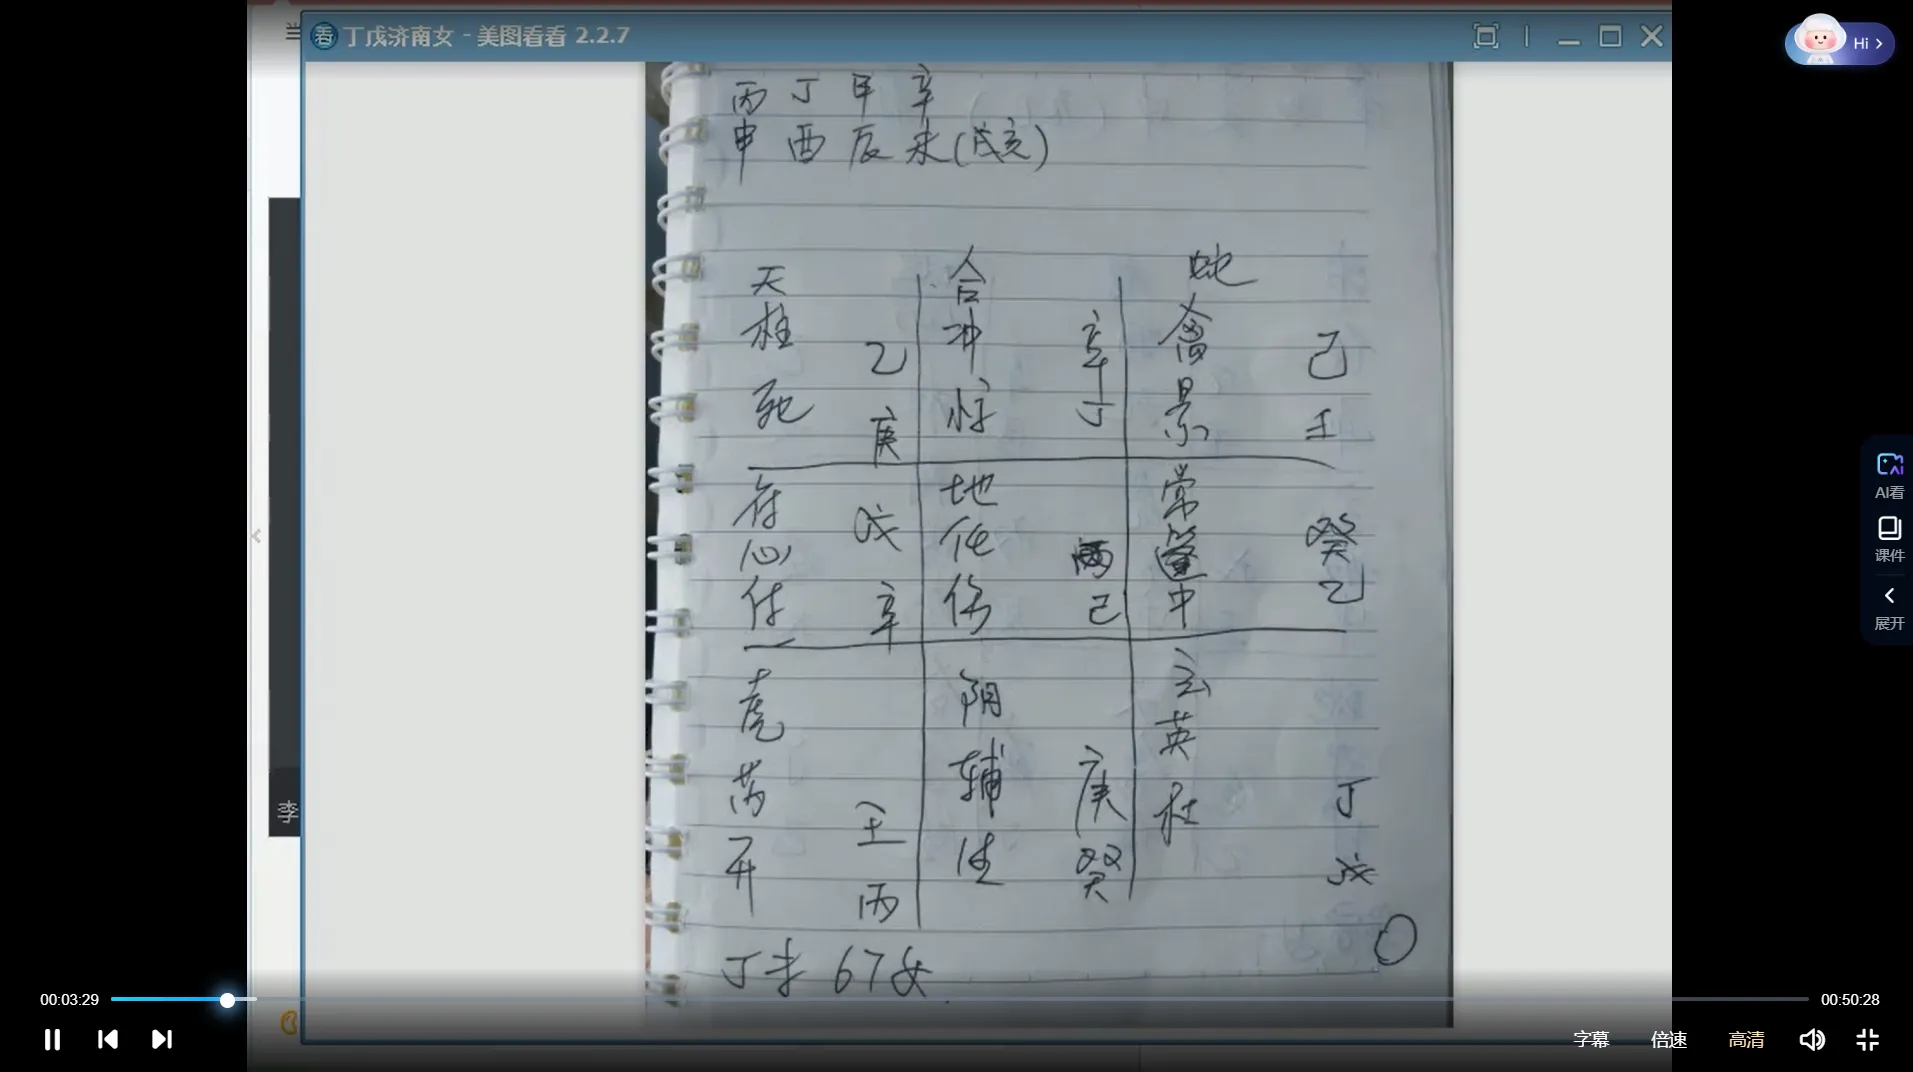 丁戊济南女 - 美图看看 2.2.7
Hi
丙 丁 甲 辛
申 酉 辰 未(戌亥)
天 合 蛇
柱 乙 冲 辛 禽 己
死 庚 惊 丁 景 壬
符 戊 地 常 癸
心 化 丙 蓬 乙
休 辛 伤 己 中
虎 阴 玄
芮 壬 辅 庚 英 丁
开 丙 生 癸 杜 戊
丁未 67女
李
AI看
课件
展开
00:03:29
00:50:28
字幕 倍速 高清